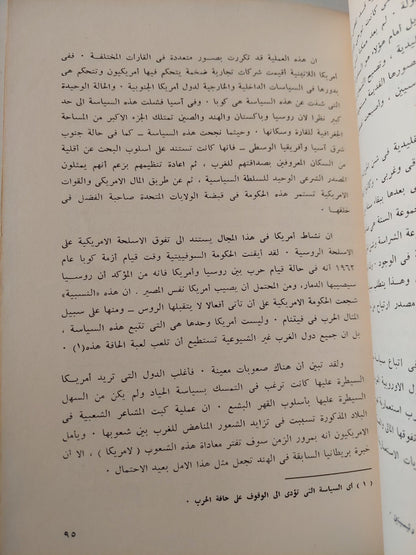 ان هذه العملية قد تكررت بصور متعددة فى القارات المختلفة ٠ ففى
أمريكا اللاتينية أقيمت شركات تجارية ضخمة يتحكم فيها أمريكيون وتتحكم هى
بدورها فى السياسات الداخلية والخارجية لدول أمريكا الجنوبية ٠ والحالة الوحيدة
التى شذت عن هذه السياسة هى كوبا ٠ وفى آسيا فشلت هذه السياسة الى حد
كبير نظرا لان روسيا وباكستان والهند والصين تمتلك الجزء الاكبر من المساحة
الجغرافية للقارة وسكانها ٠ وحيثما نجحت هذه السياسة — كما فى حالة جنوب
شرق آسيا وأفريقيا الوسطى — فانها كانت تستند على أسلوب البحث عن أقلية
من السكان المعروفين بصداقتهم للغرب ، ثم اعادة تنظيمهم بزعم أنهم يمثلون
المصدر الشرعى الوحيد للسلطة السياسية ، ثم عن طريق المال الامريكى والقوات
الامريكية تستمر هذه الحكومة فى قبضة الولايات المتحدة صاحبة الفضل فى
خلقها ٠
ان نشاط أمريكا فى هذا المجال يستند الى تفوق الاسلحة الامريكية على
الاسلحة الروسية ٠ لقد أيقنت الحكومة السوفييتية وقت قيام أزمة كوبا عام
١٩٦٢ أنه فى حالة قيام حرب بين روسيا وأمريكا فانه من المؤكد أن روسيا
سيصيبها الدمار، ومن المحتمل أن يصيب أمريكا نفس المصير ٠ ان هذه «النسبية»
شجعت الحكومة الامريكية على أن تأتى أفعالا لا يتقبلها الروس — ومنها على سبيل
المثال الحرب فى فيتنام ٠ وليست أمريكا وحدها هى التى تقبع هذه السياسة ،
بل ان جميع دول الغرب غير الشيوعية تستطيع أن تلعب لعبة الحافة هذه(١) ٠
ولقد تبين أن هناك صعوبات معينة ٠ فأغلب الدول التى تريد أمريكا
السيطرة عليها كانت ترغب فى التمسك بسياسة الحياد ولم يكن من السهل
السيطرة عليها بأسلوب القهر البشع ٠ ان عملية كبت المشاعر الشعبية فى
البلاد المذكورة تسببت فى تزايد الشعور المناهض للغرب بين شعوبها ٠ ويأمل
الامريكيون أنه بمرور الزمن سوف تفتر معاداة هذه الشعوب ( لامريكا ) ، الا أن
خبرة بريطانيا السابقة فى الهند تجعل مثل هذا الامل بعيد الاحتمال ٠
( ١ ) أى السياسة التى تؤدى الى الوقوف على حافة الحرب ٠
٩٥